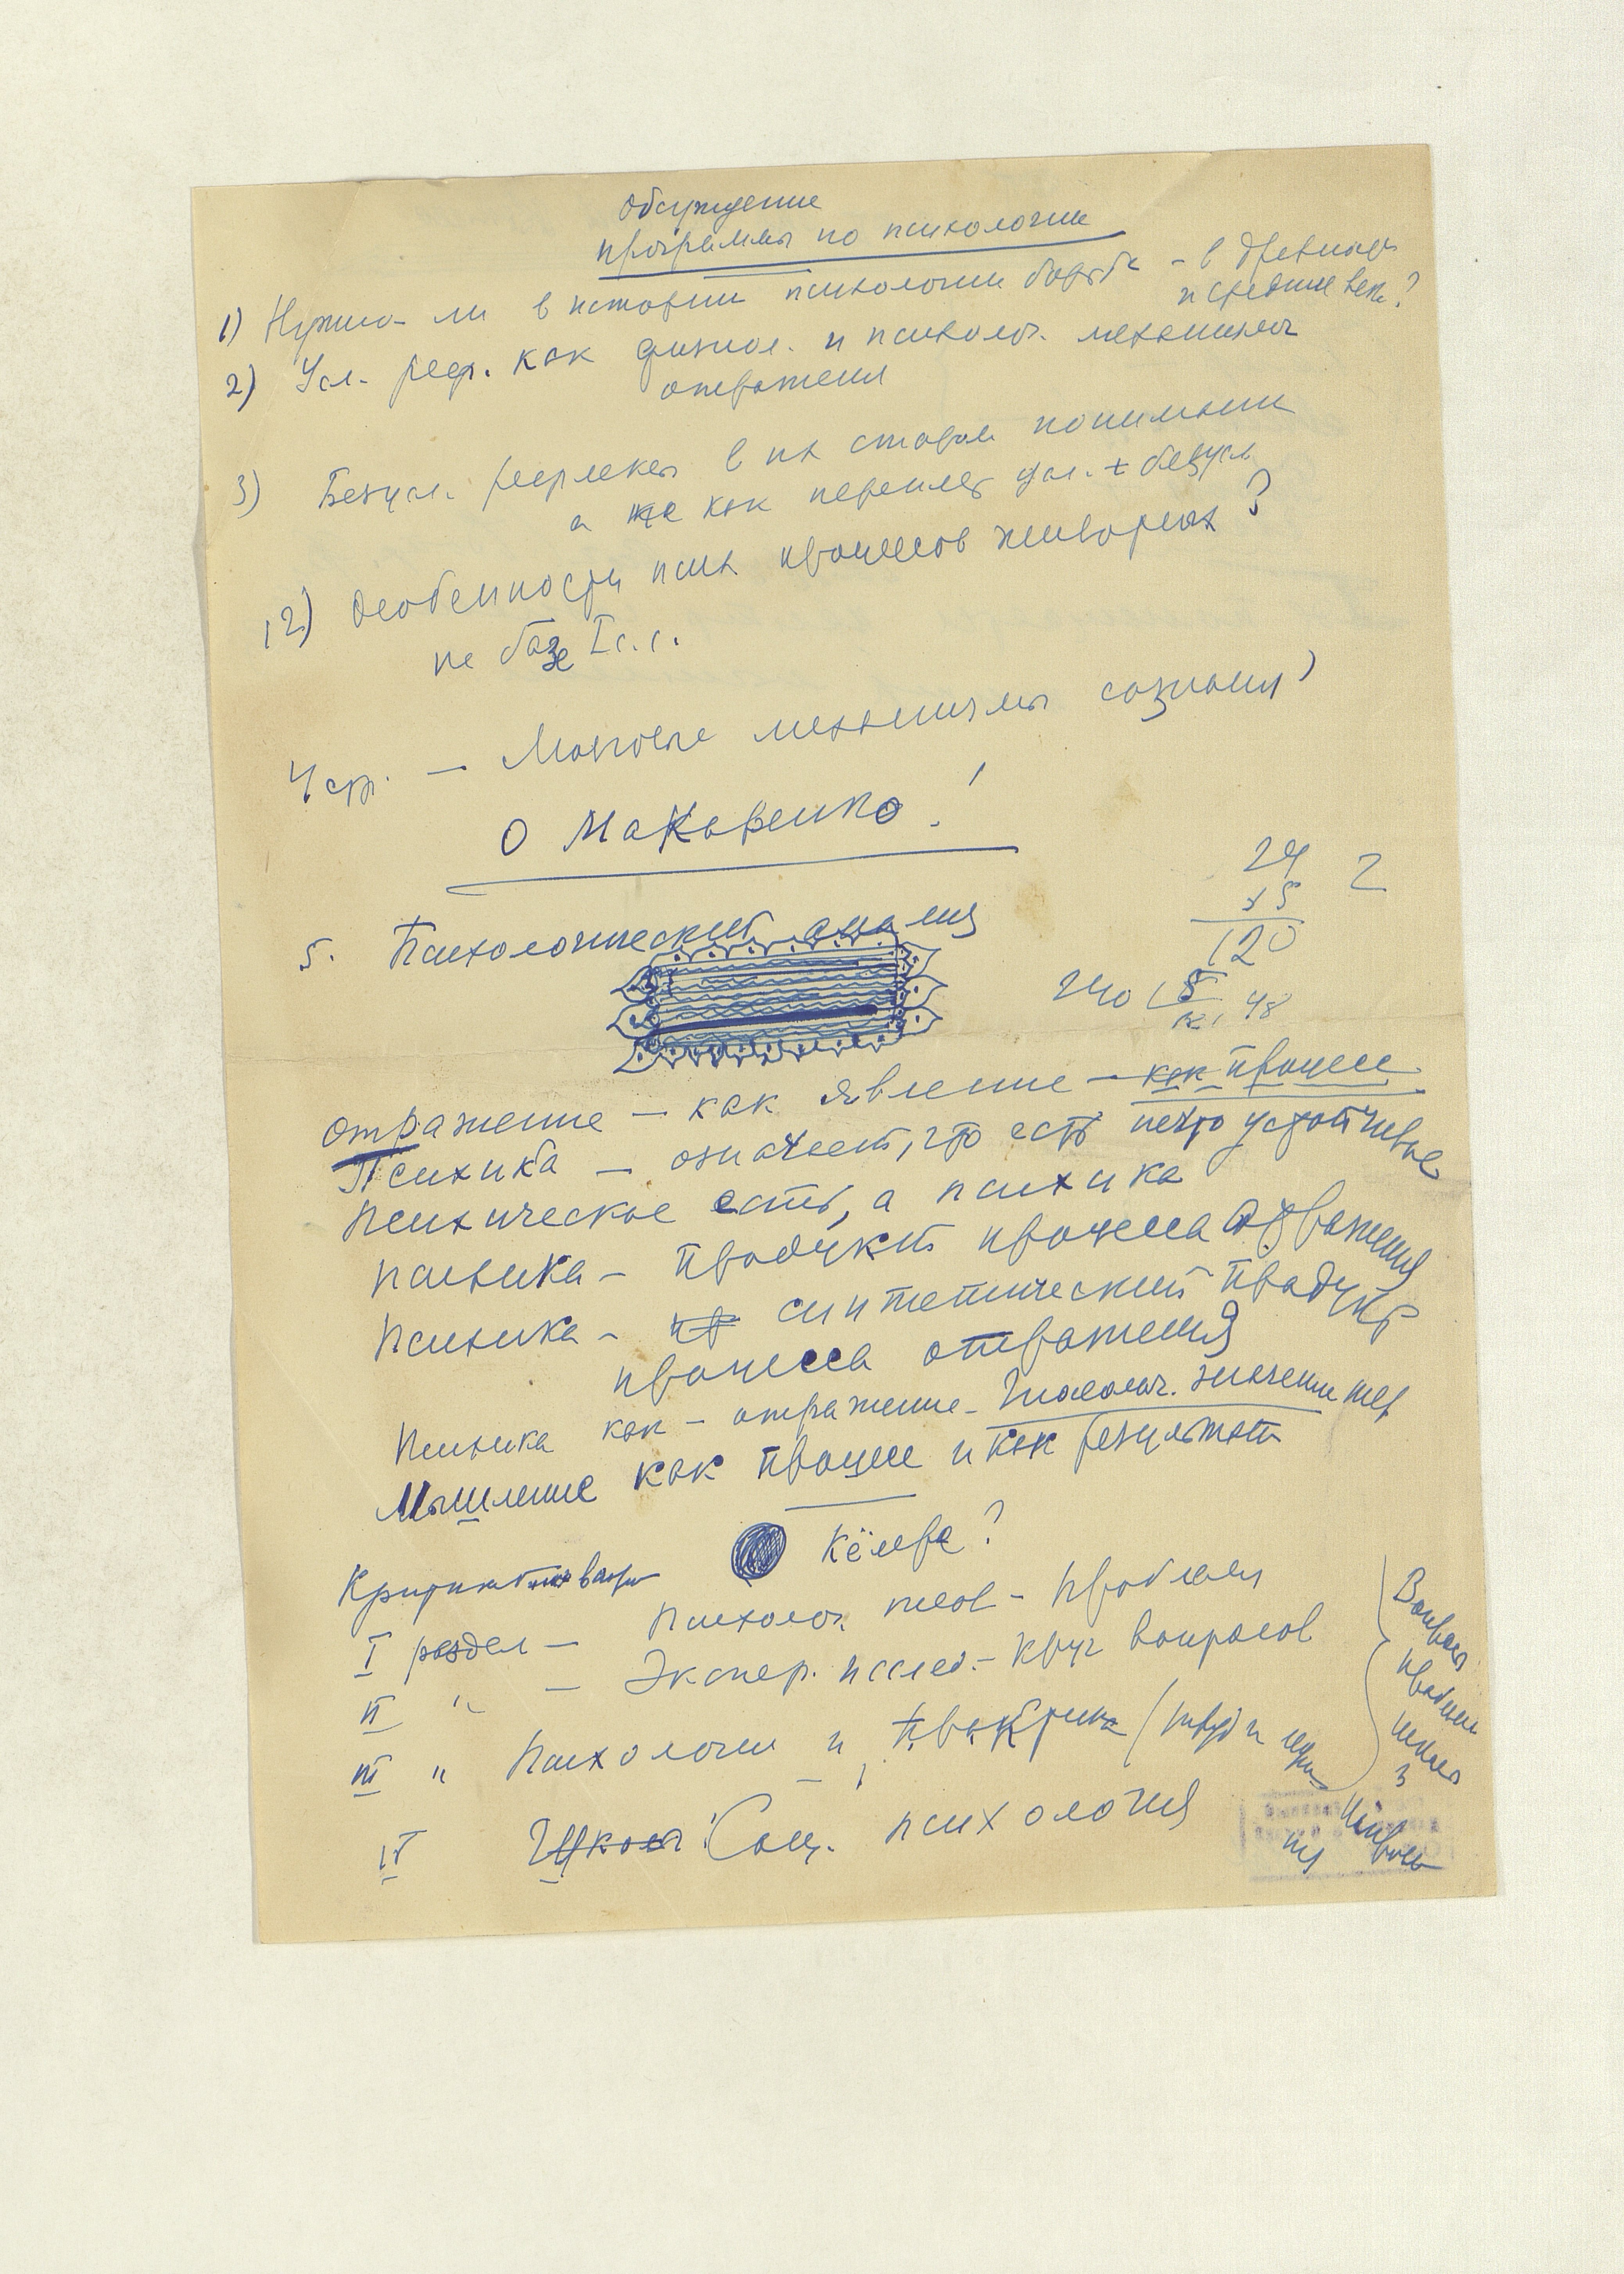 Обсуждение
программы по психологии
1) Нужно ли в истории психологии борьба - в древние
и средние века?
2) Усл. реф. как физиол. и психолог. механизмы
отражения
3) Безусл. рефлексы в их старом понимании
а не как переплет усл. + безусл.
12) Особенности псих процессов животных?
на базе I с.с.
4 стр. — Мозговые механизмы сознания?
О Макаренко!
24
x5
120
2
240 5
48
5. Психологический анализ
отражение — как явление — как процесс
Психика — означает, что есть нечто устойчивое
Психическое есть, а психика
Психика — продукт процесса отражения
Психика — пр синтетический продукт
процесса отражения
Психика как — отражение — значение
Мышление как процесс и как результат
Кёлера?
I раздел — Психолог. теор — проблемы
II " — Экспер. исслед. — круг вопросов
III " Психология и практика
IV Школы Соц. психология
Вопросы